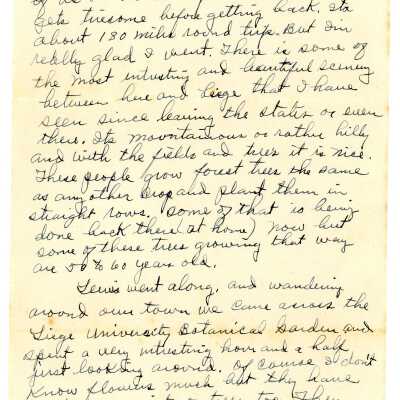 gets tiresome before getting back. Its
about 180 miles round trip. But I'm
really glad I went. There is some of
the most intersting and beautiful scenery
between here and Liege that I have
seen since leaving the States or even
there. Its mountainous or rather hilly
and with the fields and trees it is nice.
These people grow forest trees the same
as any other crop and plant them in
straight rows. (Some of that is being
done back there at home) Now but
some of these trees growing that way
are 50 to 60 years old.
Lewis went along, and wandering
around our town we came across the
Liege University Botanical Garden and
spent a very intersting hour and a half
just looking around. Of course I don't
know flowers much but they have